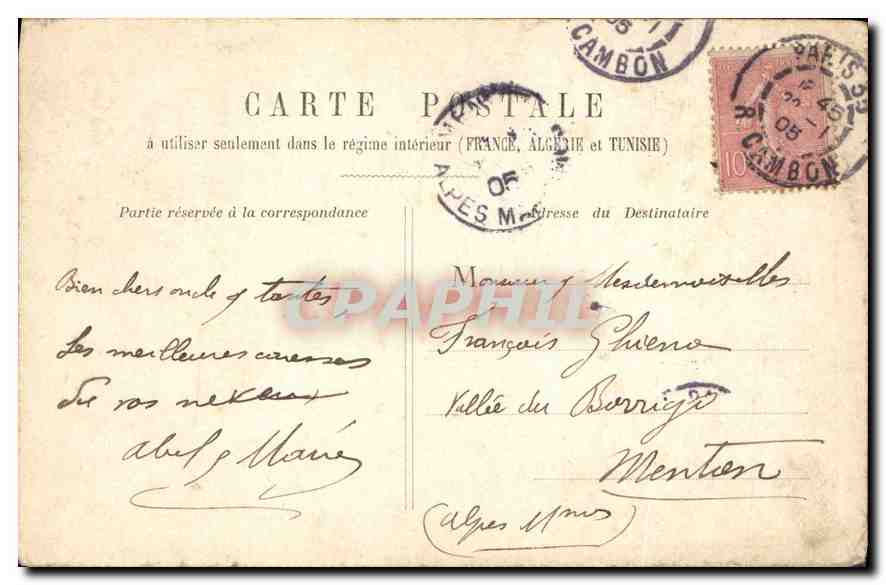 CARTE POSTALE
à utiliser seulement dans le régime intérieur (FRANCE, ALGÉRIE et TUNISIE)
Partie réservée à la correspondance
Adresse du Destinataire
Bien chers oncle & tantes,
Les meilleures caresses
de vos neveux
Abel & Marie
Monsieur & Mesdemoiselles
François Ghieno
Vallée du Borrigo
Menton
(Alpes Mmes)
CPAPHIL
PARIS
45
05
R. CAMBON
10
05
CAMBON
05
ALPES M